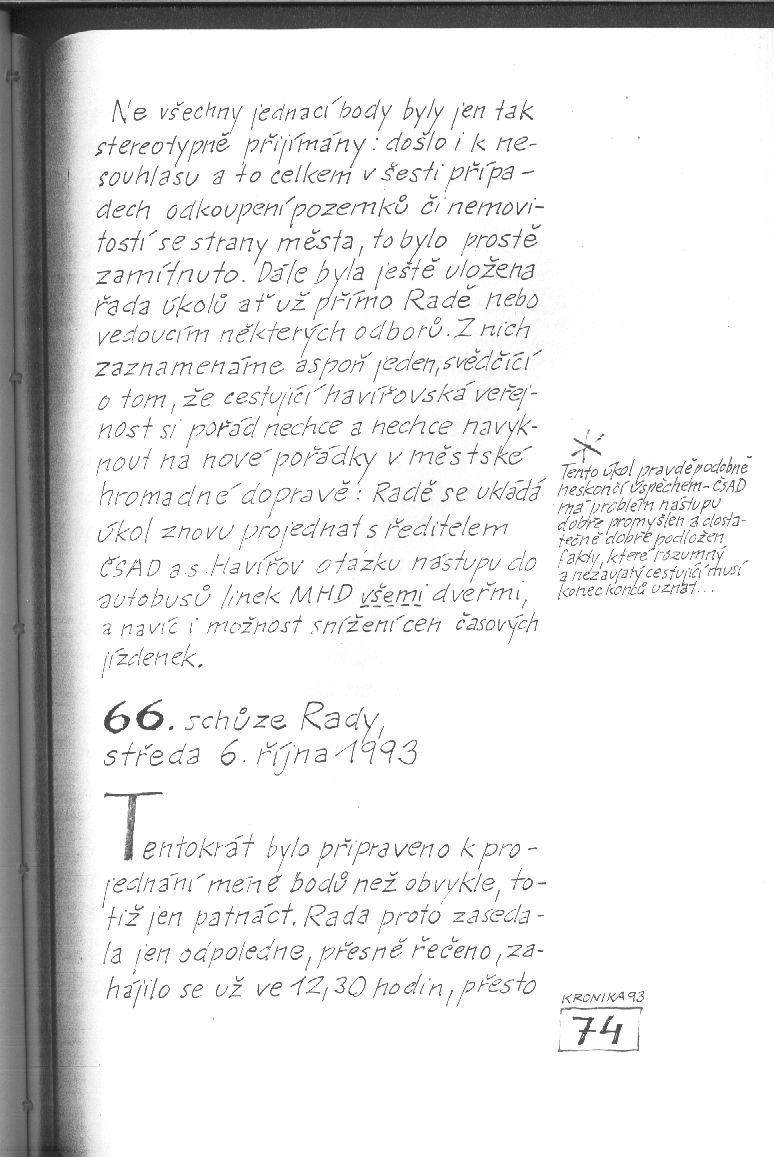 Ne všechny jednací body byly jen tak
stereotypně přijímány: došlo i k ne-
souhlasu a to celkem v šesti přípa-
dech odkoupení pozemků či nemovi-
tostí se strany města, to bylo prostě
zamítnuto. Dále byla ještě uložena
řada úkolů ať už přímo Radě nebo
vedoucím některých odborů. Z nich
zaznamenáme aspoň jeden, svědčící
o tom, že cestující havířovská veřej-
nost si pořád nechce a nechce navyk-
nout na nové pořádky v městské
hromadné dopravě: Radě se ukládá
úkol znovu projednat s ředitelem
ČSAD a.s. Havířov otázku nástupu do
autobusů linek MHD všemi dveřmi,
a navíc i možnost snížení cen časových
jízdenek.
*
Tento úkol pravděpodobně
neskončí úspěchem - ČSAD
má problém nástupu
dobře promyšlen a dosta-
tečně dobře podložen
fakty, které rozumný
a nezaujatý cestující musí
konec konců uznat...
66. schůze Rady,
středa 6. října 1993
Tentokrát bylo připraveno k pro-
jednání méně bodů než obvykle, to-
tiž jen patnáct. Rada proto zaseda-
la jen odpoledne, přesně řečeno, za-
hájilo se už ve 12,30 hodin, přesto
KRONIKA 93
74